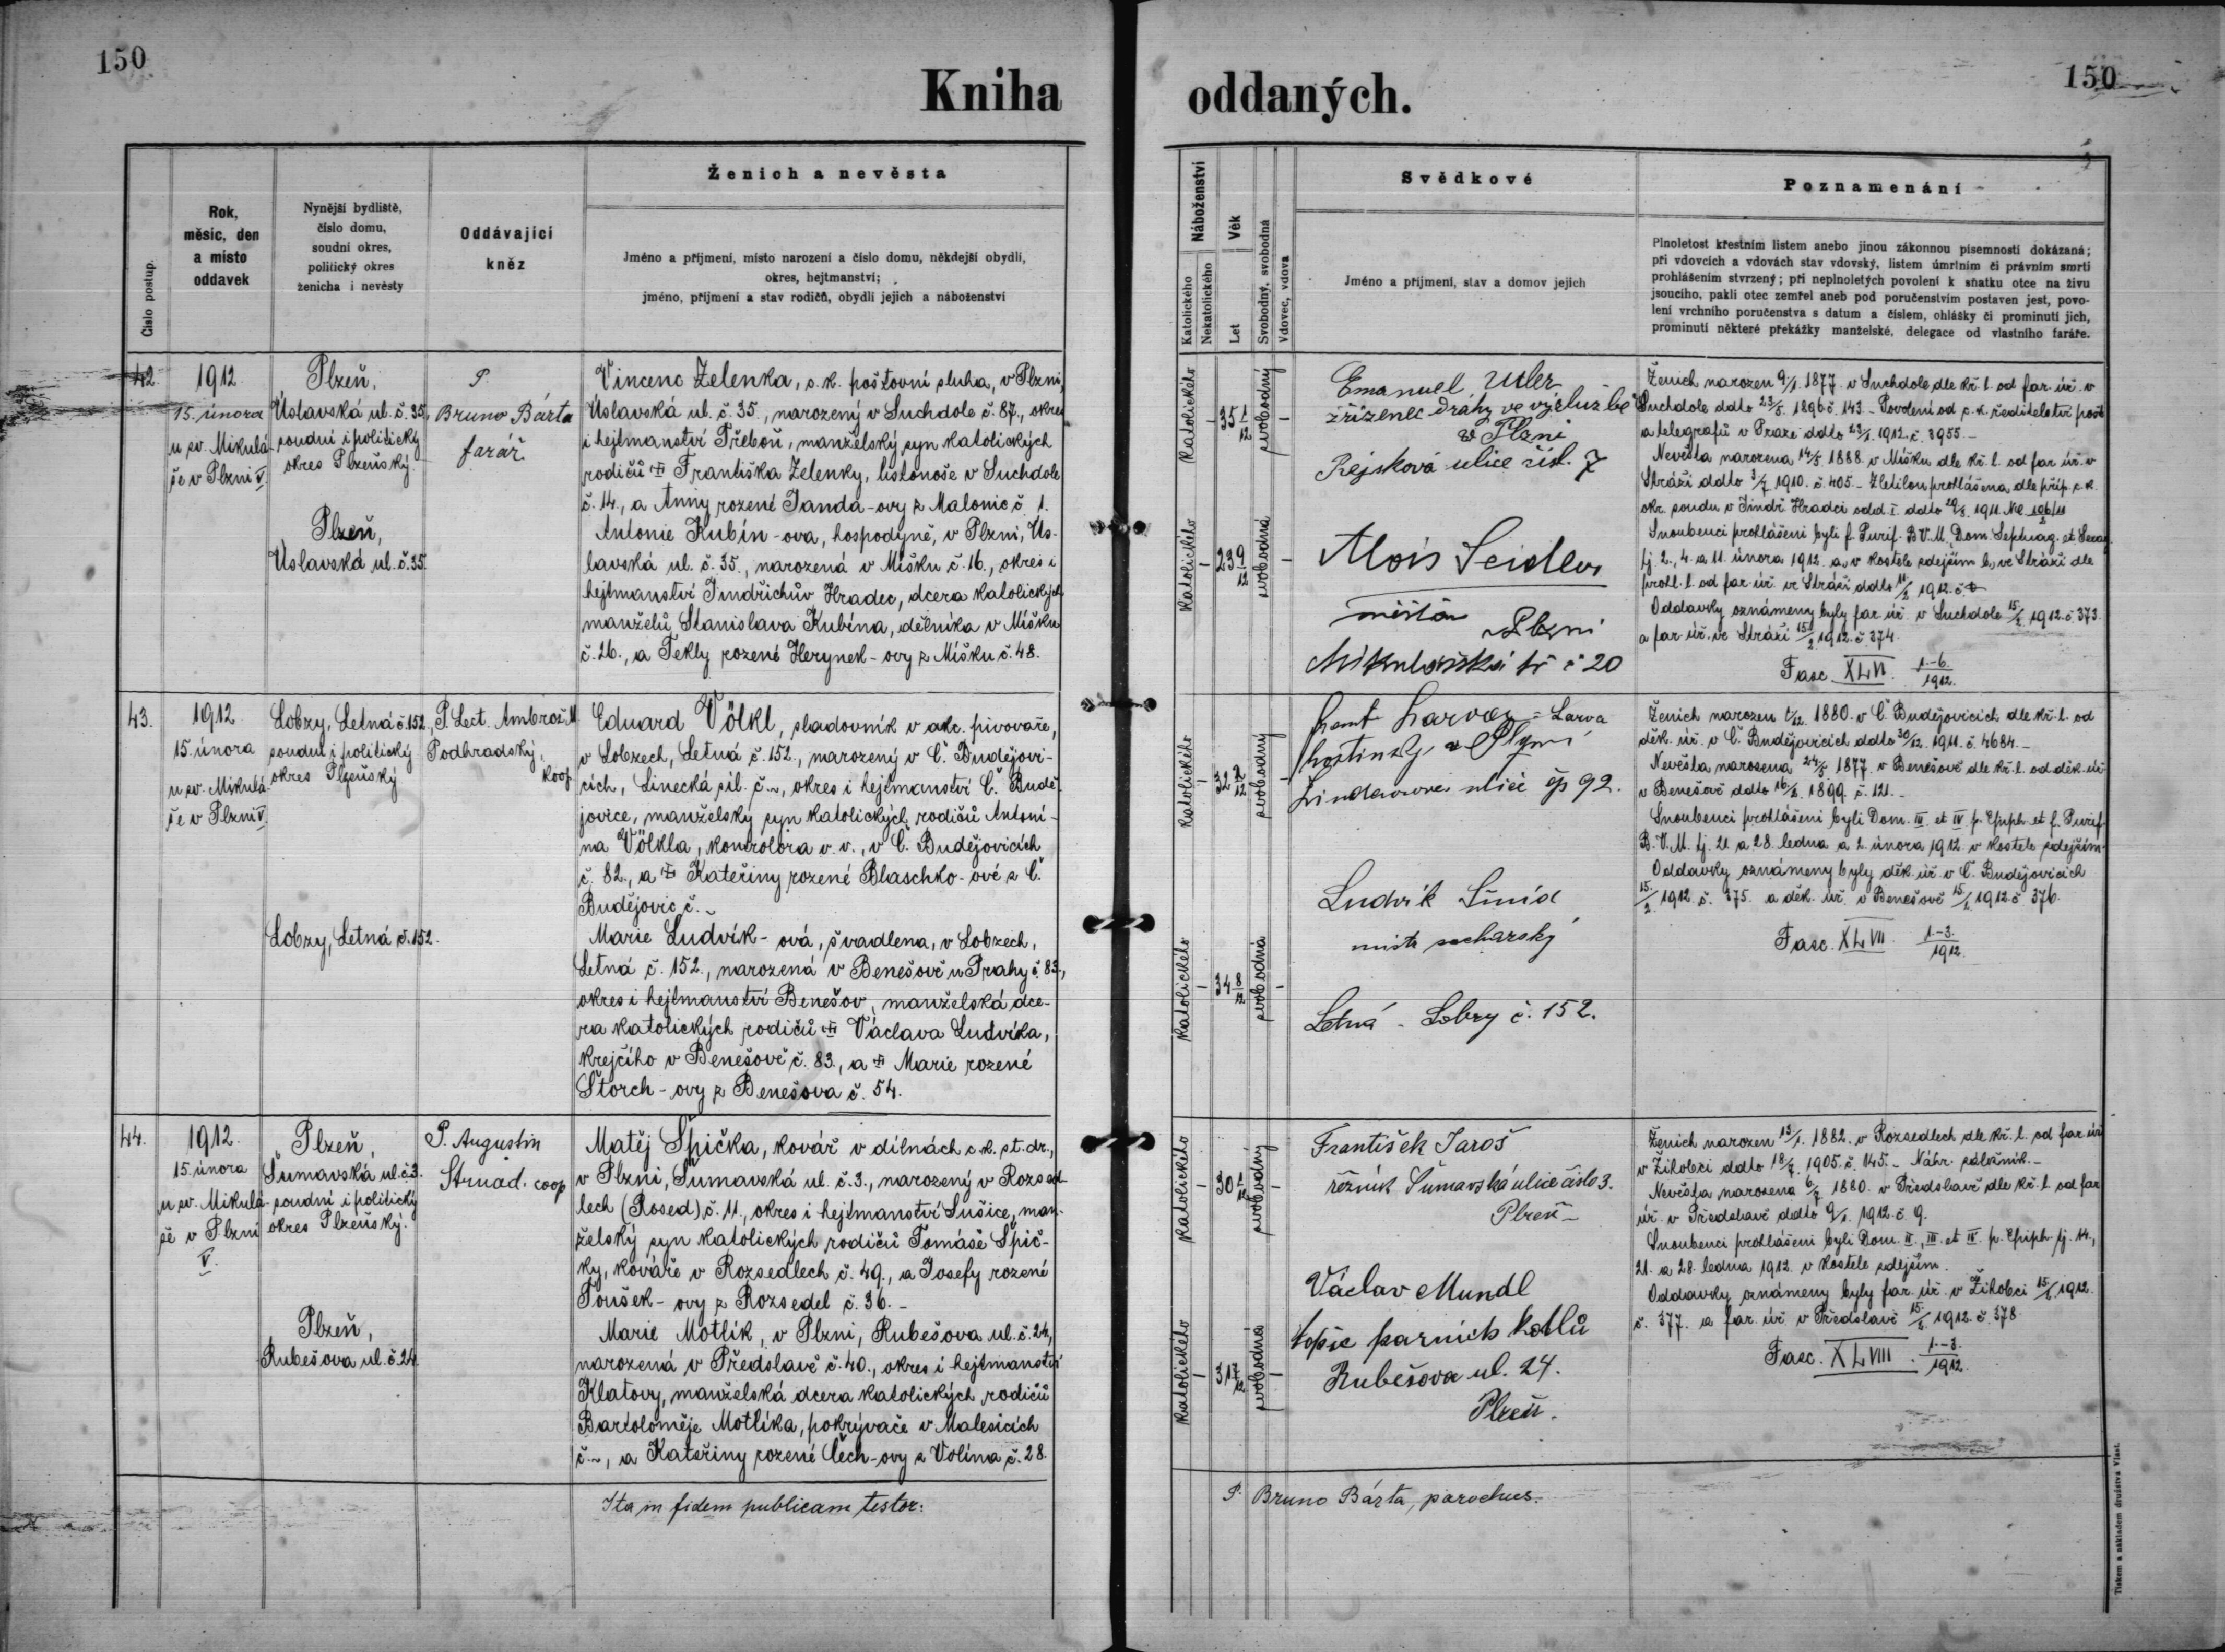 150
Kniha
oddaných.
150
Číslo postup.
Rok,
měsíc, den
a místo
oddavek
Nynější bydliště,
číslo domu,
soudní okres,
politický okres
ženicha i nevěsty
Oddávající
kněz
Ženich a nevěsta
Jméno a příjmení, místo narození a číslo domu, někdejší obydlí,
okres, hejtmanství;
jméno, příjmení a stav rodičů, obydlí jejich a náboženství
Náboženství
Katolického
Nekatolického
Věk
Let
Svobodný, svobodná
Vdovec, vdova
Svědkové
Jméno a příjmení, stav a domov jejich
Poznamenání
Plnoletost křestním listem anebo jinou zákonnou písemností dokázaná;
při vdovcích a vdovách stav vdovský, listem úmrtním či právním smrti
prohlášením stvrzený; při neplnoletých povolení k sňatku otce na živu
jsoucího, pakli otec zemřel aneb pod poručenstvím postaven jest, povo-
lení vrchního poručenstva s datum a číslem, ohlášky či prominutí jich,
prominutí některé překážky manželské, delegace od vlastního faráře.
42.
1912
15. února
u sv. Mikulá-
še v Plzni V.
Plzeň,
Úslavská ul. č. 35,
soudní i politický
okres Plzeňský.
Plzeň,
Úslavská ul. č. 35.
P.
Bruno Bárta
farář
Vincenc Zelenka, c. k. poštovní sluha, v Plzni,
Úslavská ul. č. 35., narozený v Suchdole č. 87., okres
i hejtmanství Třeboň, manželský syn katolických
rodičů Františka Zelenky, listonoše v Suchdole
č. 14., a Anny rozené Janda-ovy z Malonic č. 1.
Antonie Kubín-ova, hospodyně, v Plzni, Ús-
lavská ul. č. 35., narozená v Mišku č. 16., okres i
hejtmanství Jindřichův Hradec, dcera katolických
manželů Stanislava Kubína, dělníka v Míšku
č. 26., a Tekly rozené Herynek-ovy z Míšku č. 48.
katolického
–
35 1/12
svobodný
–
katolického
–
23 9/12
svobodná
–
Emanuel Utler
zřízenec dráhy ve výslužbě
v Plzni
Rejsková ulice čísl. 7
Alois Seidler
měšťan
v Plzni
Mikulášská tř č 20
Ženich narozen 9/1. 1877. v Suchdole dle kř. l. od far. úř. v
Suchdole ddto 23/5. 1896. č. 143. – Povolení od c. k. ředitelství pošt
a telegrafů v Praze ddto 23/1. 1912. č. 8955. –
Nevěsta narozena 14/5. 1888. v Míšku dle kř. l. od far úř. v
Stráži ddto 3/7 1910. č. 405. – Zletilou prohlášena dle příp. c. k.
okr. soudu v Jindř. Hradci odd. I. ddto 29/3. 1911.
Snoubenci prohlášeni byli f. Purif. B. V. M., Dom. Septuag. et Sexag.
tj. 2., 4. a 11. února 1912. a, v kostele zdejším b, ve Stráži dle
prohl. l. od far. úř. ve Stráži ddto 11/2 1912.
Oddavky oznámeny byly far. úř. v Suchdole 15/2 1912. č. 373.
a far. úř. ve Stráži 15/2. 1912. č. 374.
Fasc. XLVI. 1.-6./1912.
43.
1912
15. února
u sv. Mikulá-
še v Plzni V.
Lobzy, Letná č. 152.,
soudní i politický
okres Plzeňský
Lobzy, Letná č. 152.
P. Lect. Ambrož M
Podhradský,
koop.
Eduard Völkl, sladovník v akc. pivovaře,
v Lobzech, Letná č. 152., narozený v Č. Budějovi-
cích, Linecká sil. č. ~, okres i hejtmanství Č. Budě-
jovice, manželský syn katolických rodičů Antoní-
na Völkla, kontrolóra v. v., v Č. Budějovicích
č. 82., a Kateřiny rozené Blaschko-ové z Č.
Budějovic č. ~
Marie Ludvík-ová, švadlena, v Lobzech,
Letná č. 152., narozená v Benešově u Prahy č. 83.,
okres i hejtmanství Benešov, manželská dce-
ra katolických rodičů Václava Ludvíka,
krejčího v Benešově č. 83., a Marie rozené
Štorch-ovy z Benešova č. 54.
katolického
–
32 2/12
svobodný
–
katolického
–
34 8/12
svobodná
–
= Larva
hostinský v Plzni
ulice čp 92.
Ludvík Šmíd
mistr sochařský
Letná – Lobzy č. 152.
Ženich narozen 1/12. 1880. v Č. Budějovicích dle kř. l. od
děk. úř. v Č. Budějovicích ddto 30/12. 1911. č. 4684. –
Nevěsta narozena 24/5. 1877. v Benešově dle kř. l. od děk. úř.
v Benešově ddto 16/2. 1899. č. 121. –
Snoubenci prohlášeni byli Dom. III. et IV. p. Epiph. et f. Purif.
B. V. M. tj. 21. a 28. ledna a 2. února 1912. v kostele zdejším.
Oddavky oznámeny byly děk. úř. v Č. Budějovicích
15./2. 1912. č. 375. a děk. úř. v Benešově 15./2. 1912. č 376.
Fasc. XLVII 1.-3./1912.
44.
1912.
15. února
u sv. Mikulá-
še v Plzni
V.
Plzeň,
Šumavská ul. č. 3.
soudní i politický
okres Plzeňský.
Plzeň,
Rubešova ul. č. 24.
P. Augustin
Strnad. coop
Matěj Špička, kovář v dílnách c. k. st. dr.,
v Plzni, Šumavská ul. č. 3., narozený v Rozsed-
lech (Rosed) č. 11., okres i hejtmanství Sušice, man-
želský syn katolických rodičů Tomáše Špič-
ky, kováře v Rozsedlech č. 49., a Josefy rozené
Toušek-ovy z Rozsedel č. 36. –
Marie Motlík, v Plzni, Rubešova ul. č. 24,
narozená v Předslavě č. 40., okres i hejtmanství
Klatovy, manželská dcera katolických rodičů
Bartoloměje Motlíka, pokrývače v Malesicích
č. ~, a Kateřiny rozené Čech-ovy z Volína č. 28.
katolického
–
30 1/12
svobodný
–
katolického
–
31 7/12
svobodná
–
František Jaroš
řezník Šumavská ulice číslo 3.
Plzeň –
Václav Mundl
topič parních kotlů
Rubešova ul. 24.
Plzeň.
Ženich narozen 13/1. 1882. v Rozsedlech dle kř. l. od far úř
v Žihobci ddto 18/7. 1905. č. 145. – Náhr. záložník. –
Nevěsta narozena 6/7 1880. v Předslavě dle kř. l. od far
úř. v Předslavě ddto 9/1. 1912. č. 9.
Snoubenci prohlášeni byli Dom. II., III. et IV. p. Epiph. tj. 14.,
21. a 28. ledna 1912. v kostele zdejším.
Oddavky oznámeny byly far. úř. v Žihobci 15/2. 1912.
č. 377. a far. úř. v Předslavě 15./2. 1912. č. 378.
Fasc. XLVIII. 1.-3./1912.
Ita in fidem publicam testor:
P. Bruno Bárta, parochus.
Tiskem a nákladem družstva Vlast.